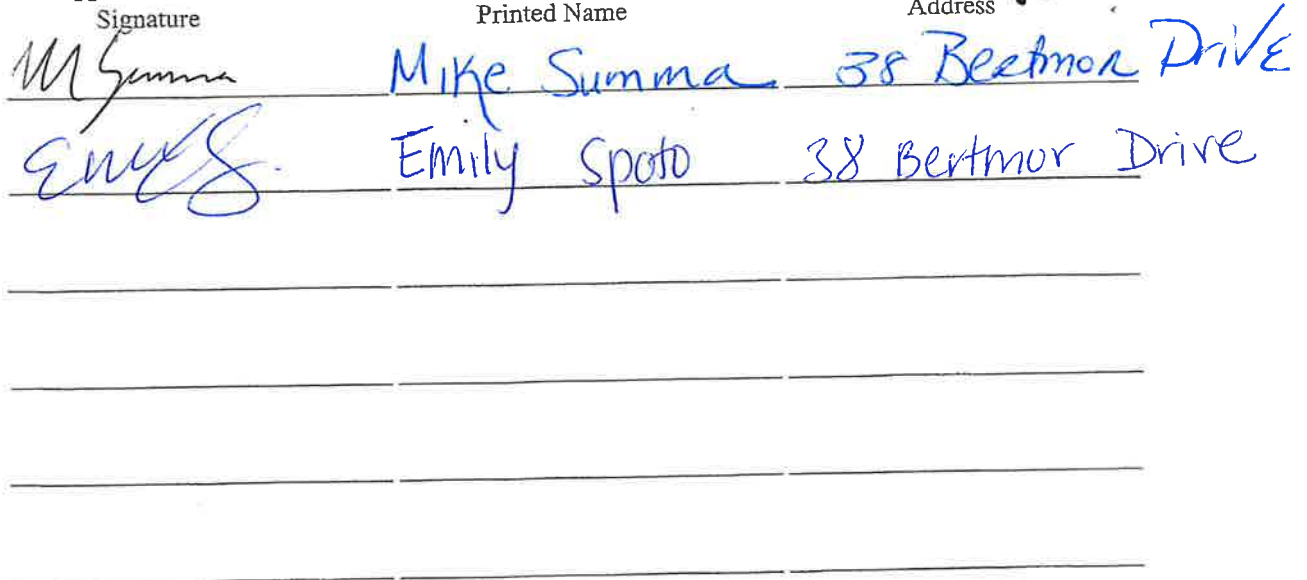 Signature Printed Name Address
M Summa Mike Summa 38 Bertmor Drive
Emily Spoto 38 Bertmor Drive